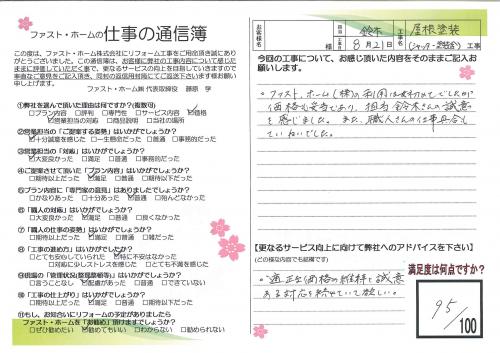 ファスト・ホームの仕事の通信簿
この度は、ファスト・ホーム株式会社にリフォーム工事をご用命頂き誠にあり
がとうございました。この通信簿は、お客様に弊社の工事内容について感じた
ままに評価していただく事で、更なるサービスの向上を目指していきますので
率直なご意見をご記入頂き、同封の返信用封筒にてご返送下さいます様お願い
申し上げます。
ファスト・ホーム㈱ 代表取締役 藤原 学
①弊社を選んで頂いた理由は何ですか?(複数可)
□プラン内容 □評判 □専門性 □サービス内容 ☑価格
☑営業担当の対応 □商品説明 □当社の場所
②営業担当の「ご提案する姿勢」はいかがでしょうか?
☑十分誠意を感じた □一生懸命だった □普通 □今一歩だった
③営業担当の「対応」はいかがでしょうか?
☑大変良かった □満足 □普通 □事務的だった
④ご提案させて頂いた「プラン内容」はいかがでしょうか?
□期待以上だった ☑満足 □普通 □期待以下だった
⑤プラン内容に「専門家の意見」はありましたでしょうか?
□かなりあった □十分あった □普通 □殆んどなかった
⑥「職人の対応」はいかがでしょうか?
□大変良かった ☑満足 □普通 □良くなかった
⑦「職人の仕事の姿勢」はいかがでしょうか?
□期待以上だった ☑誠実 □普通 □雑だった
⑧「工事の進めかた」はいかがでしたか?
□とても安心していられた ☑特に不安はなかった
□対応に少しストレスを感じた □とても不満だった
⑨現場の「管理状況(整理整頓等)」はいかがでしょうか?
□言うことなし ☑配慮があった □普通 □できていない
⑩「工事の仕上がり」はいかがでしょうか?
□期待以上だった ☑満足 □普通 □期待以下
⑪もし、お知合いにリフォームの予定がありましたら
ファスト・ホームを「お勧め」頂けますでしょうか?
□ぜひ勧めたい ☑勧めてもいい □わからない □勧められない
お客様名
様
担当 鈴木
工事日 8月21日
工事名 屋根塗装
工事
今回の工事について、お感じ頂いた内容をそのままご記入お
願いします。
・ファスト・ホーム(株)の利用は初めてでしたが
価格も妥当であり、担当鈴木さんの誠意
を感じました。また、職人さんの仕事具合も
ていねいでした。
【更なるサービス向上に向けて弊社へのアドバイスを下さい】
(どの様な内容でも結構です)
・適正な価格の維持と誠意
ある対応を続けていて欲しい。
満足度は何点ですか?
95/100